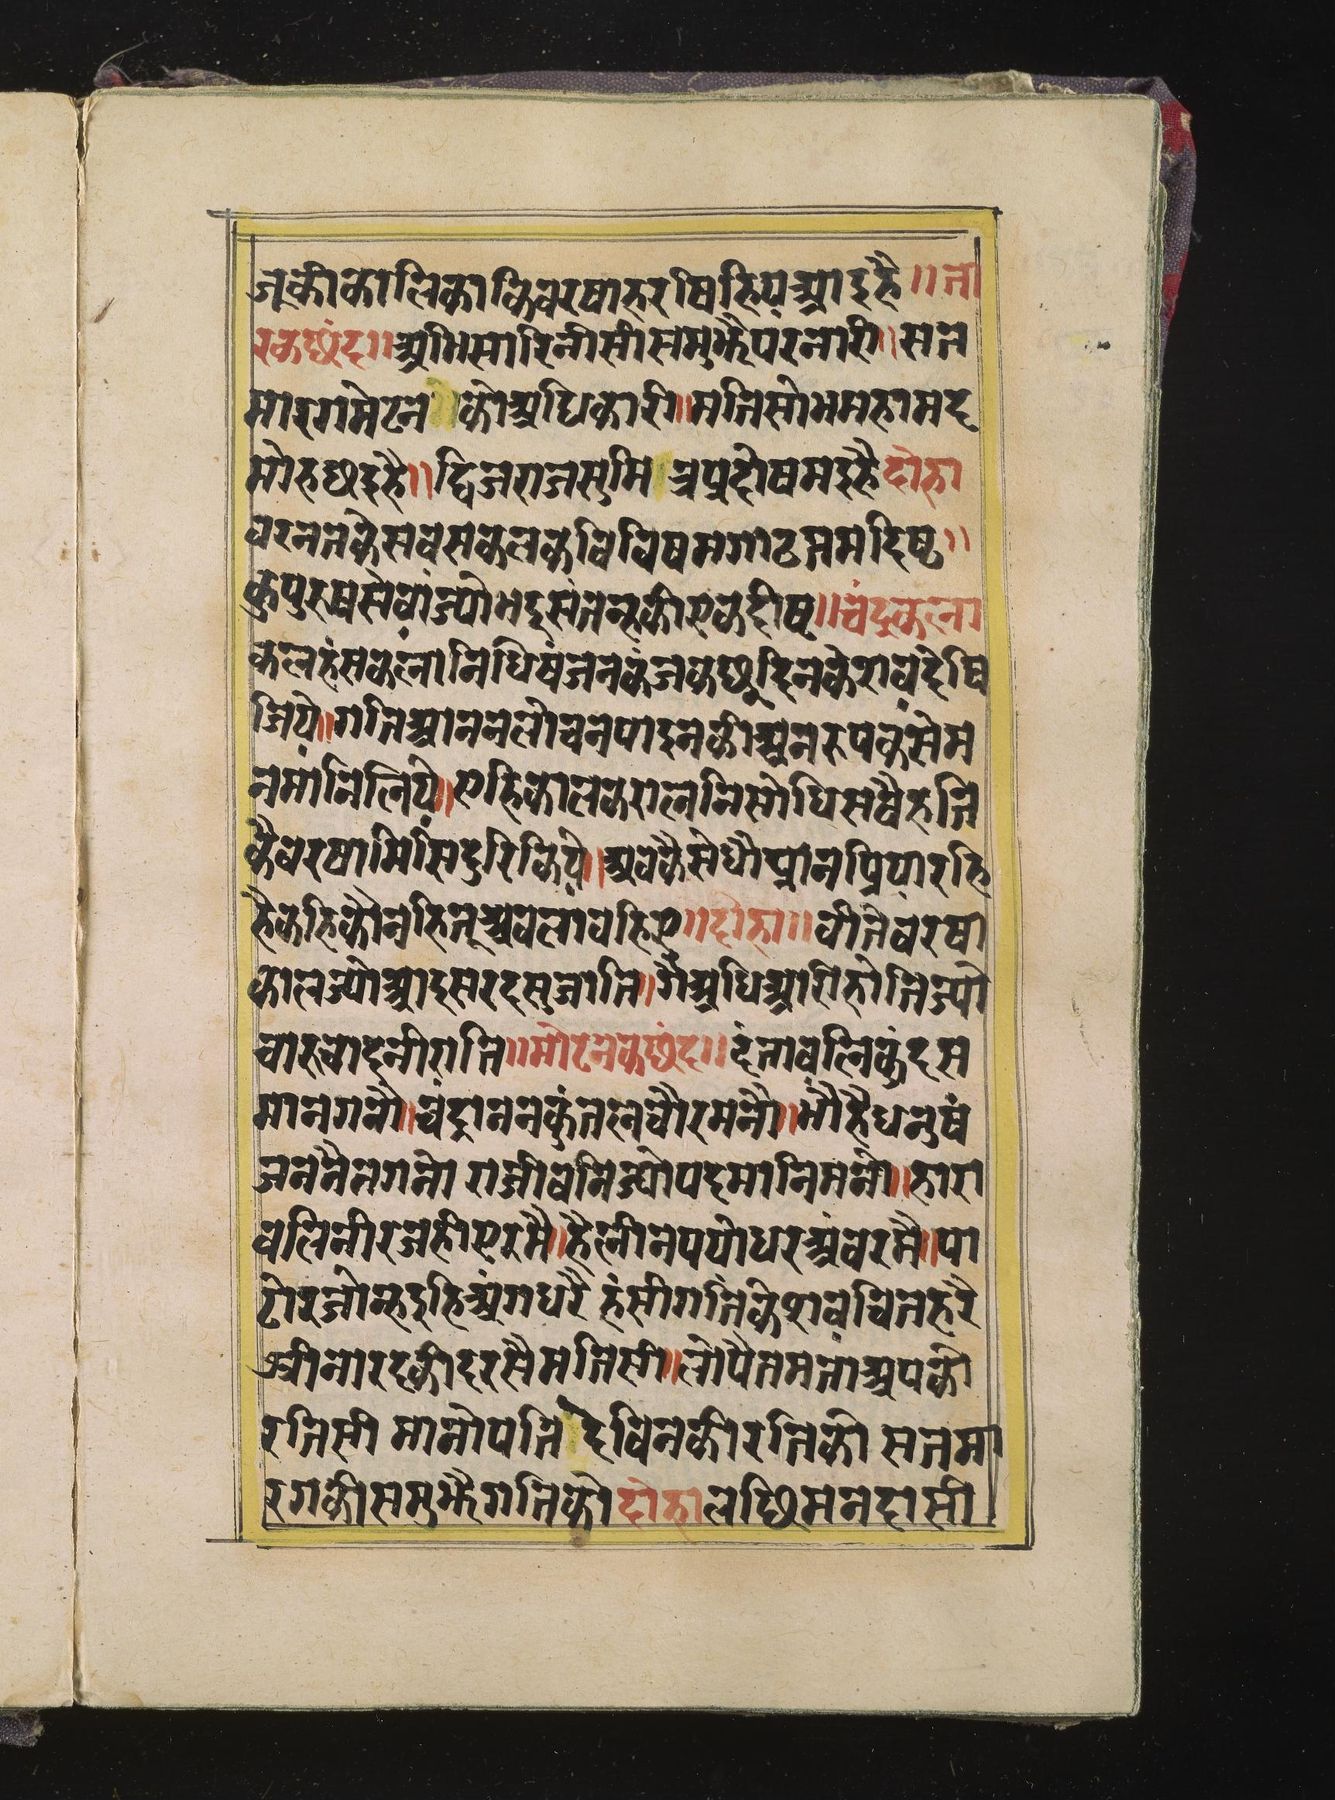 जूकीकालिकाकिवरषाहरषिहियआइहै॥ता
रकछंद॥अभिसारिनीसीसमुझैपरनारी॥सत
मारगमेटन कोअधिकारी॥मतिसोभमहामद
मोहछइहै॥द्विजराजसुमि त्रप्रदोषमइहैदोहा
वरनतकेसवसकलकविविषमगाढतमदिष्ट॥
कुपुरुषसेवाज्योभइसंतन्हकीएकदीष॥चंद्रकला
कलहंसकलानिधिषंजनकंजकछूदिनकेशवदेषि
जिये॥गतिआननलोचनपाइनकीअनरुपकसेम
नमांनिलिये॥एहिकालकरालनिसोधिसवैहति
कैवरषामिसिदुरिकिये॥अवकैसेधौप्रानप्रियारहि
हैकहिकौनहितूअवलांवहिए॥दोहा॥वीतैवरषा
कालज्योआइसरदसुजाति॥गैअधिआरीहोतिज्यो
चारुचादनीराति॥मोटनकछंद॥दंतावलिकुंदस
मानगनौ॥चंद्राननकुंतलचौरमनौ॥भौहैधनुषं
जननैनगनो राजीवनिज्योपदमानिमनो॥हारा
वलिनीरजहीएरमै॥हैलीनपयोधरअंवरमै॥पा
टोरजोन्हइहिअंगधरै हंसीगतिकेशवचितहरै
श्रीनारदकीदरसैमतिसी॥लोपैतमताअपको
रतिसी मानोपति देविनकीरतिको सतमा
रगकीसमुझैगतिकोदोहालछिमनदासी